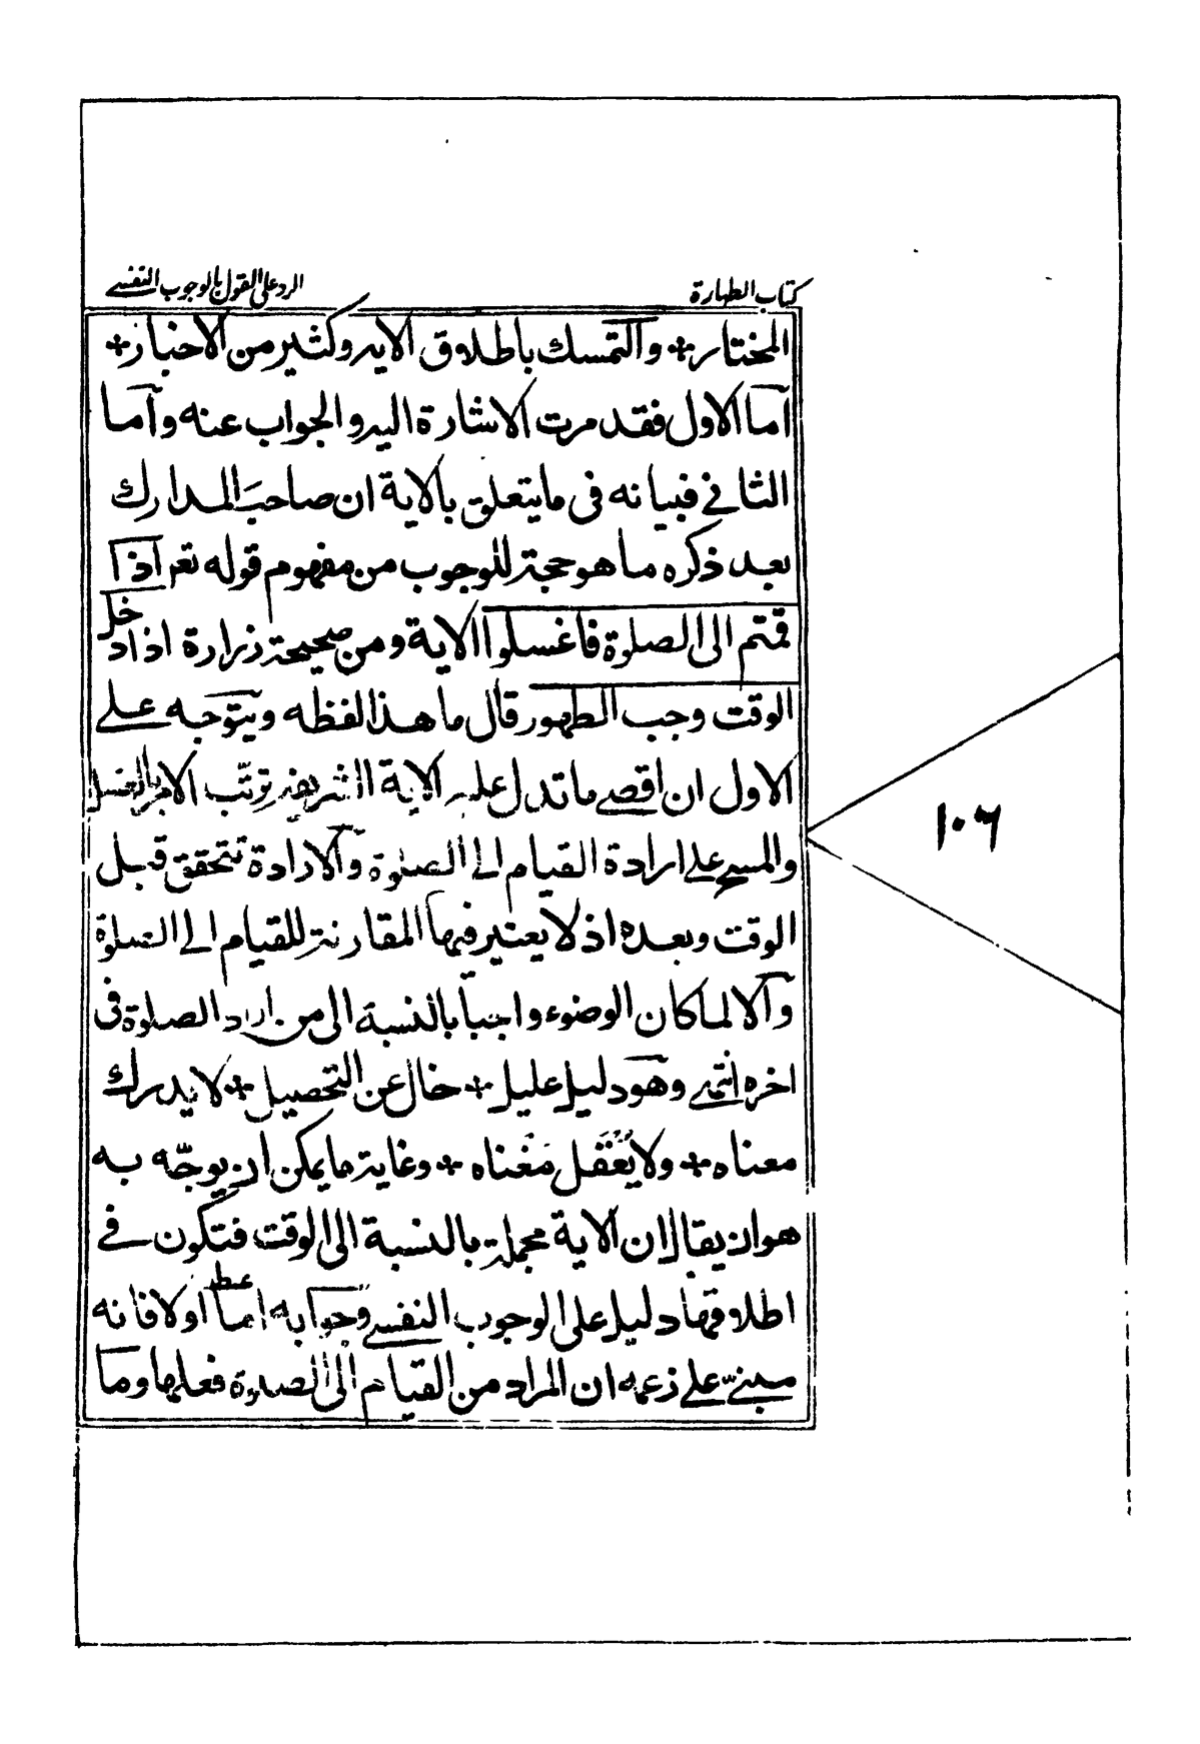 كتاب الطهارة
الرد على القول بالوجوب النفسي
المختار + والتمسك باطلاق الايه وكثير من الاخبار +
اما الاول فقد مرت الاشارة اليه والجواب عنه واما
الثاني فبيانه فى ما يتعلق بالاية ان صاحب المدارك
بعد ذكره ما هو حجة للوجوب من مفهوم قوله تع اذا
قمتم الى الصلوة فاغسلوا الاية ومن صحيحة زرارة اذا دخل
الوقت وجب الطهور قال ما هذا لفظه ويتوجه على
الاول ان اقصى ما تدل عليه الاية الشريفة ترتّب الامر بالغسل
والمسح على ارادة القيام الى الصلوة والارادة تتحقق قبل
الوقت وبعده اذ لا يعتبر فيها المقارنة للقيام الى الصلوة
والا لما كان الوضوء واجبا بالنسبة الى من اراد الصلوة فى
اخره انتهى وهو دليل عليل + خال عن التحصيل + لا يدرك
معناه + ولا يُعْقَل مَغْناه + وغاية ما يمكن ان يوجّه به
هو ان يقال ان الاية مجملة بالنسبة الى الوقت فتكون في
اطلاقها دليل على الوجوب النفسي وجوابه اما اولا فانه
مبنيّ على زعمه ان المراد من القيام الى الصلوة فعلها وما
١٠٦